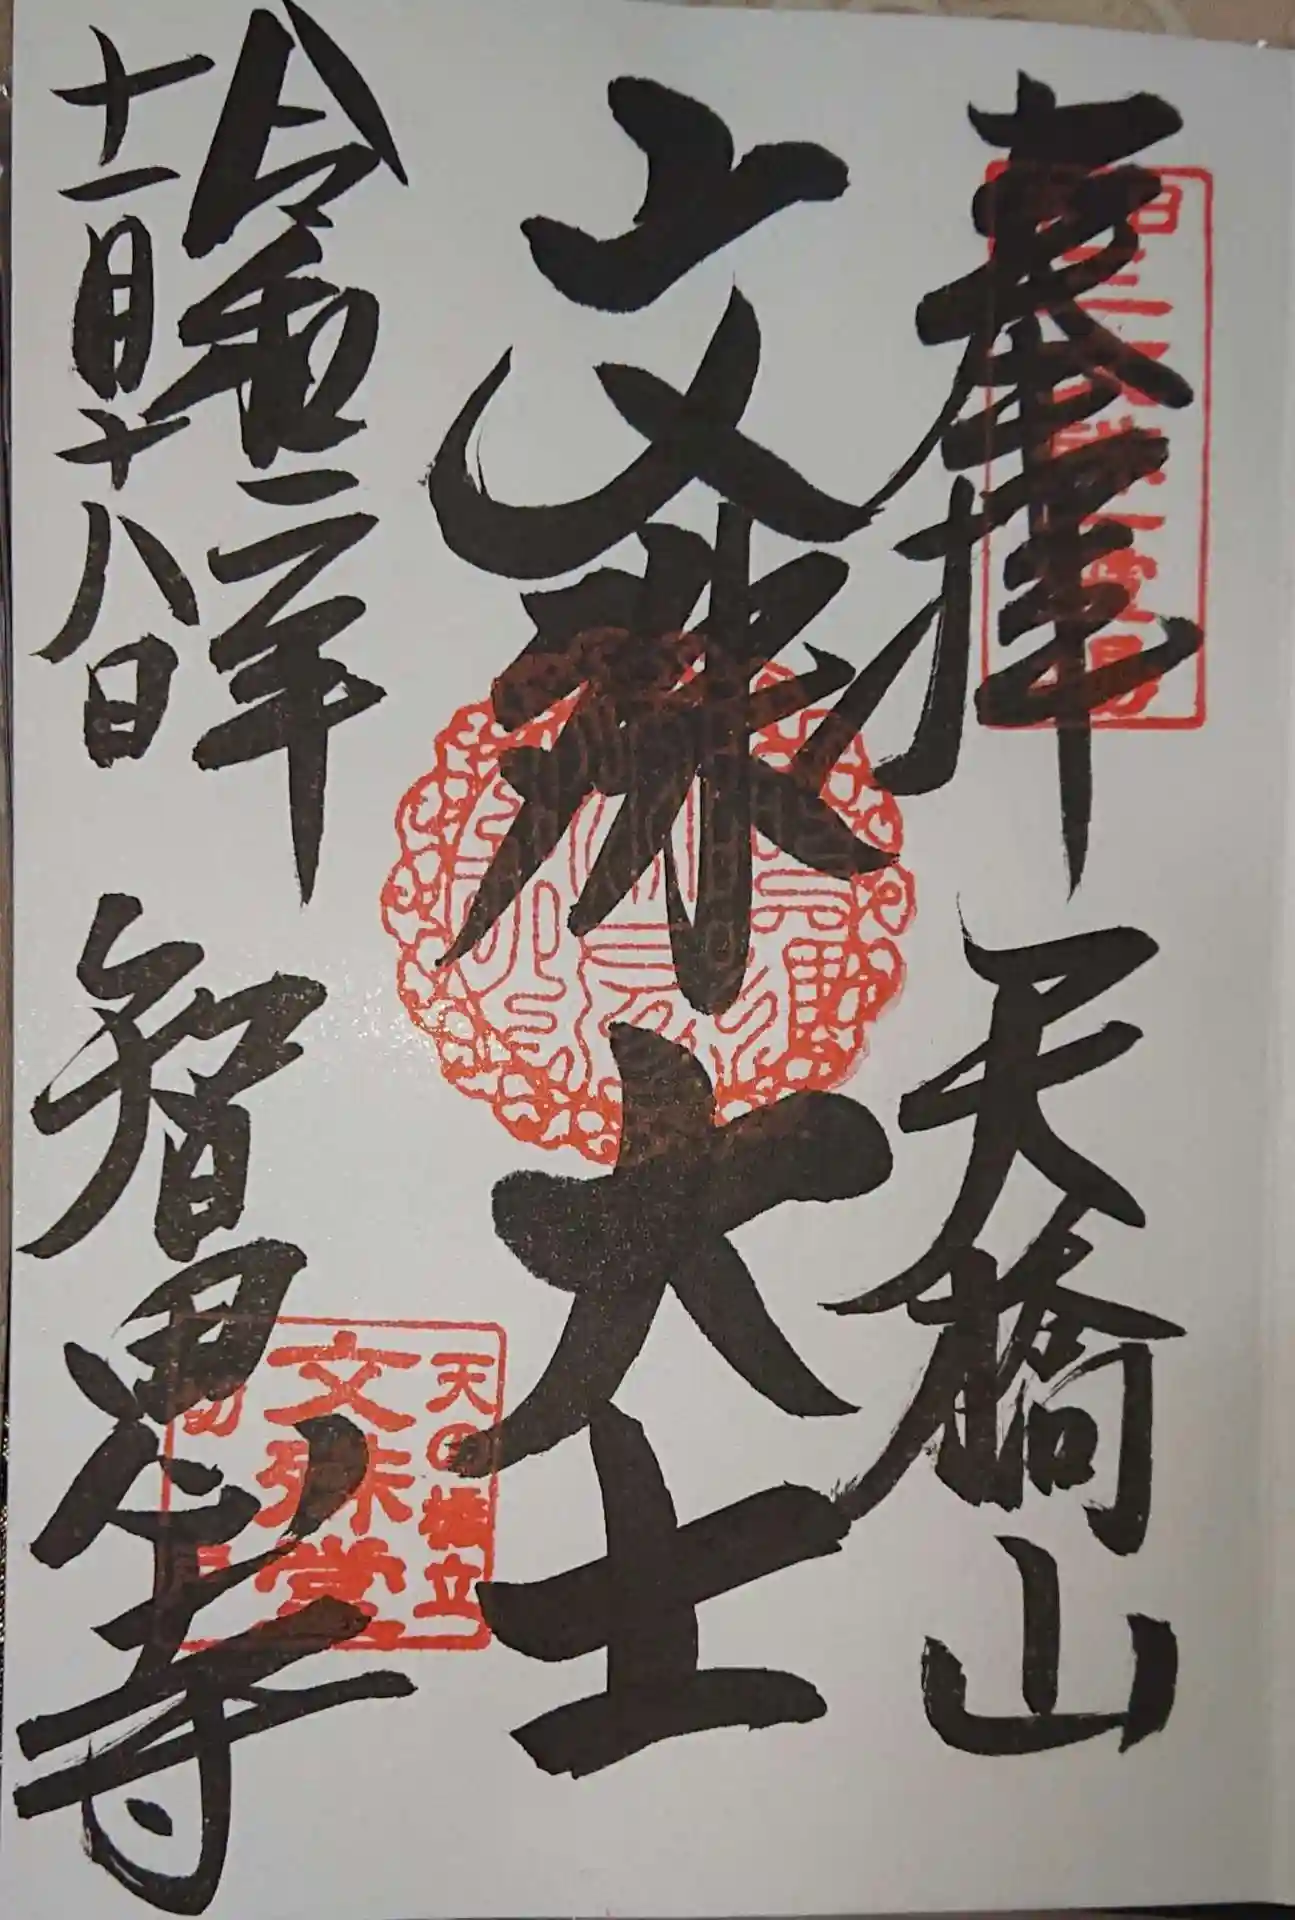 奉拝 天橋山
文殊大士
令和二年
十一月十八日
智恩寺
天の橋立
文殊堂